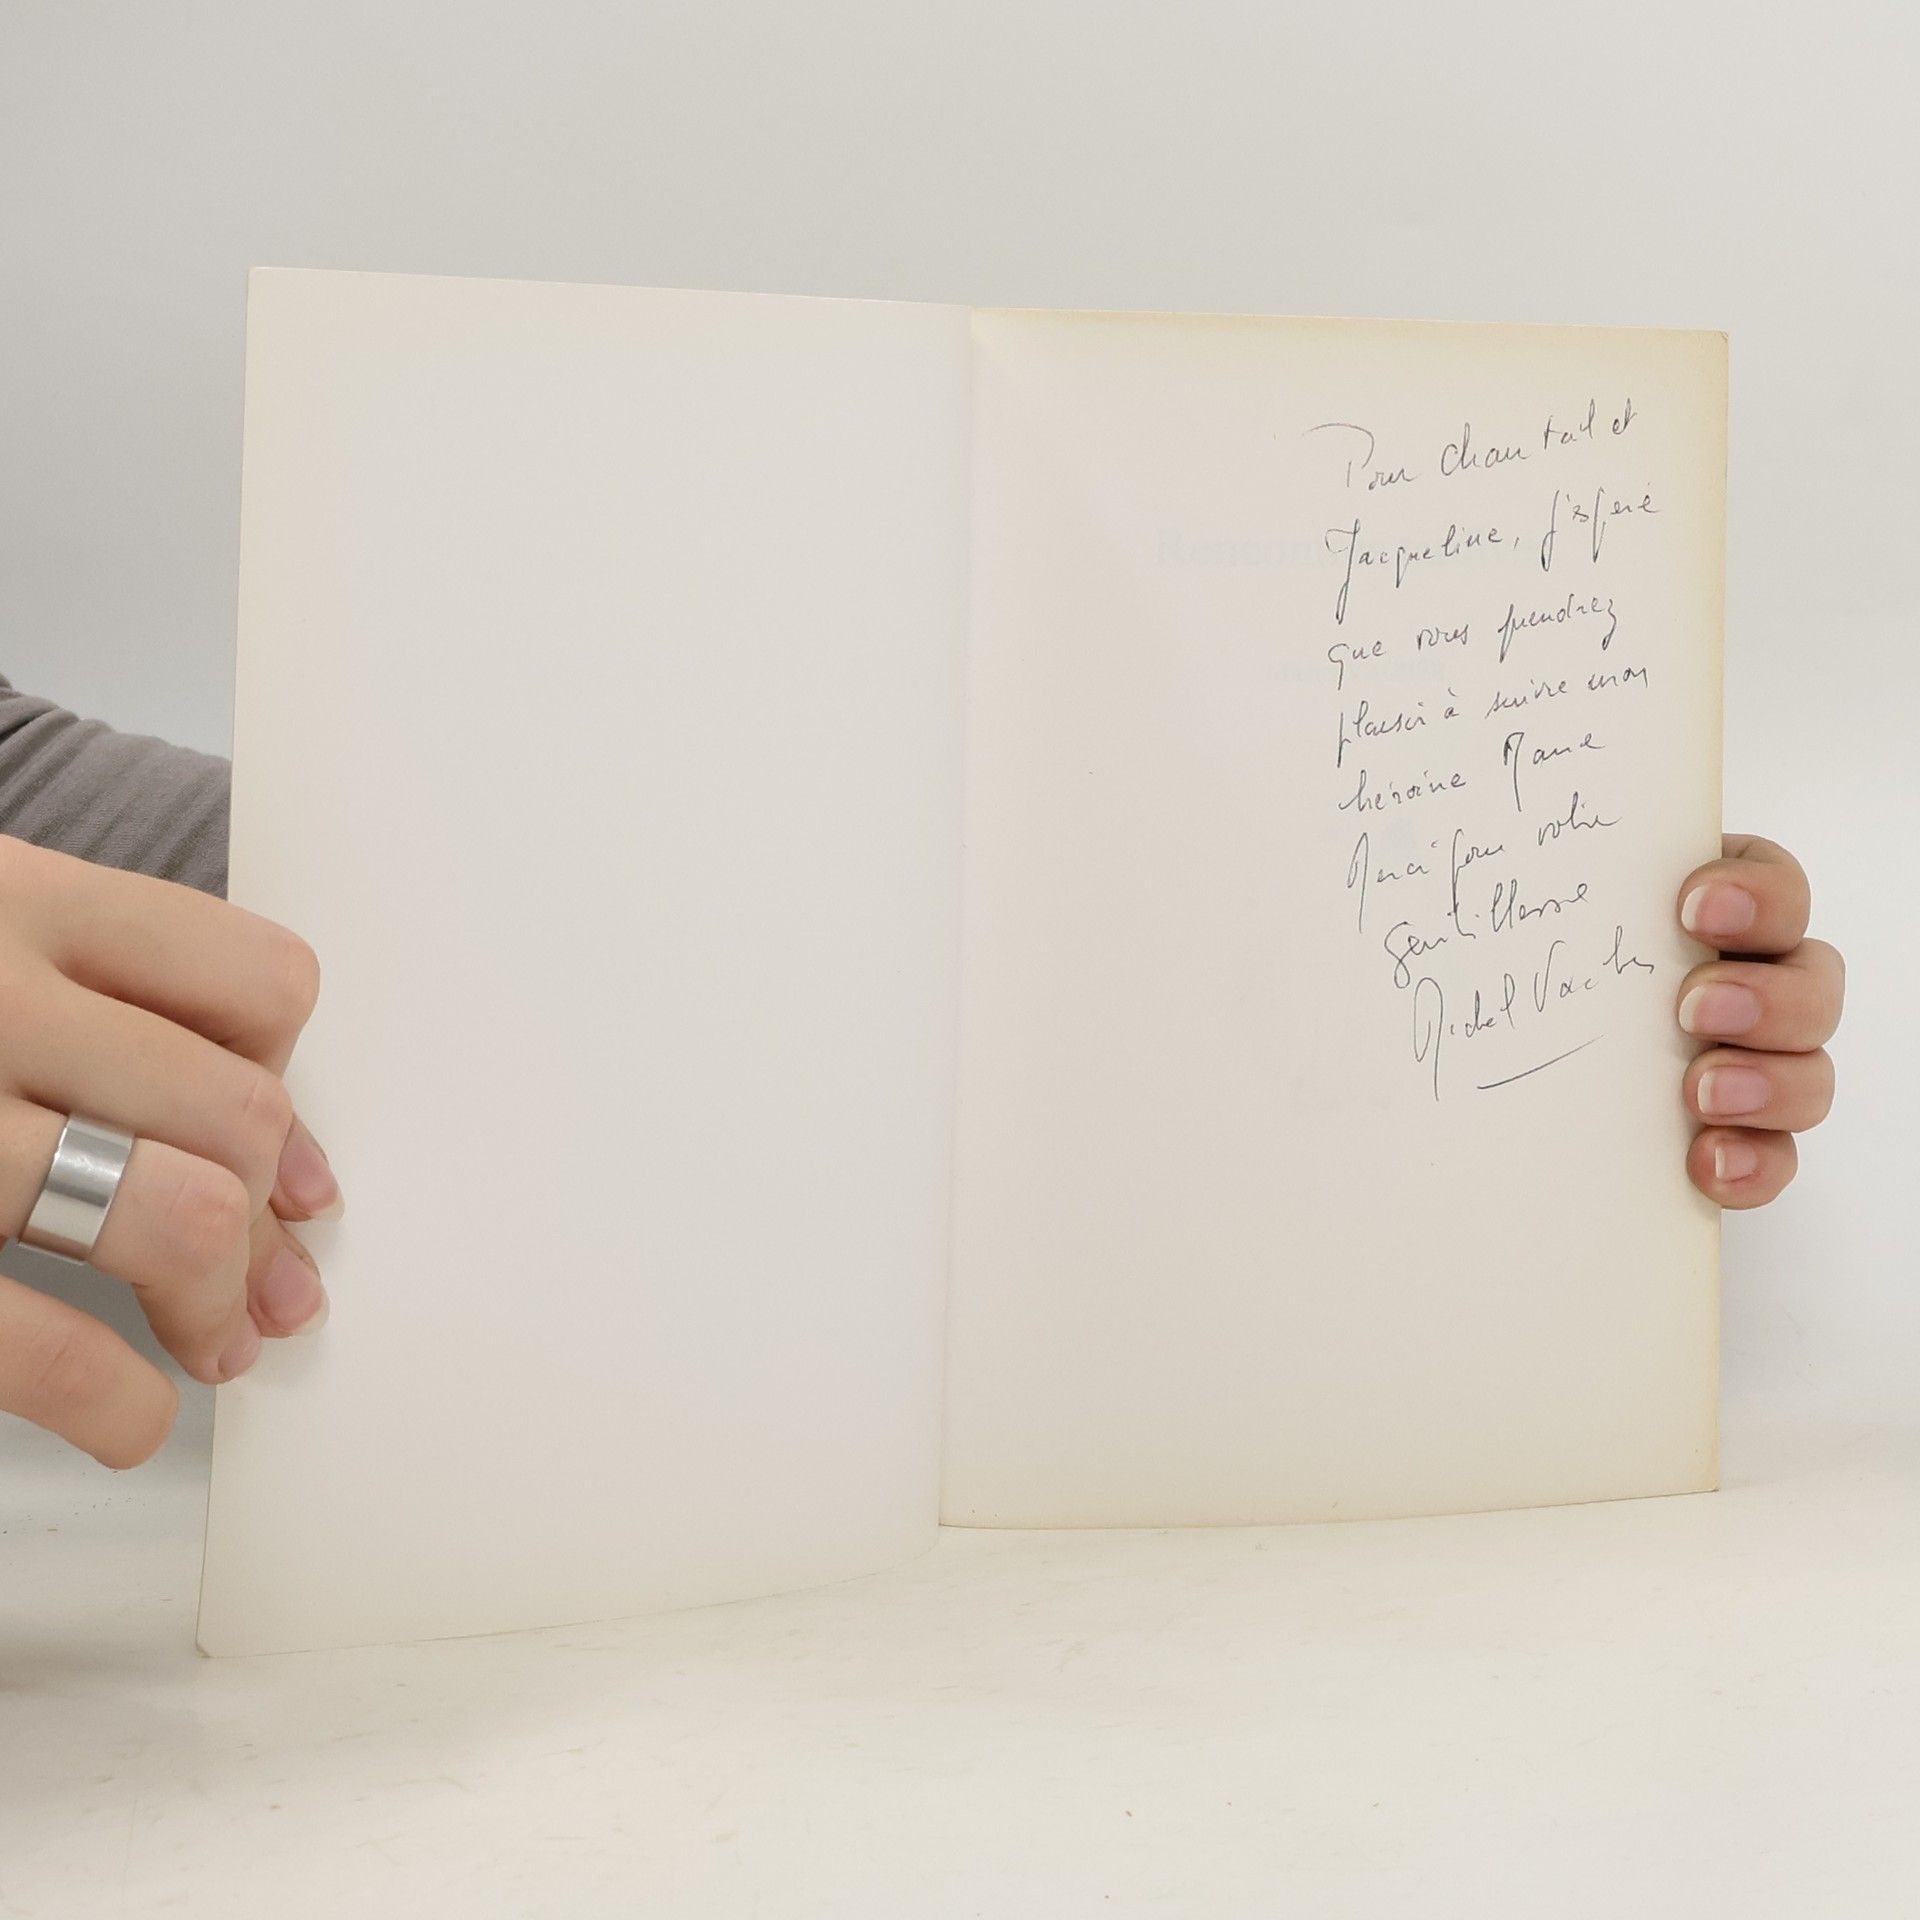 Pour Chantal et
Jacqueline, j'espère
que vous prendrez
plaisir à suivre mon
héroïne Marie
Merci pour votre
gentillesse
Michel